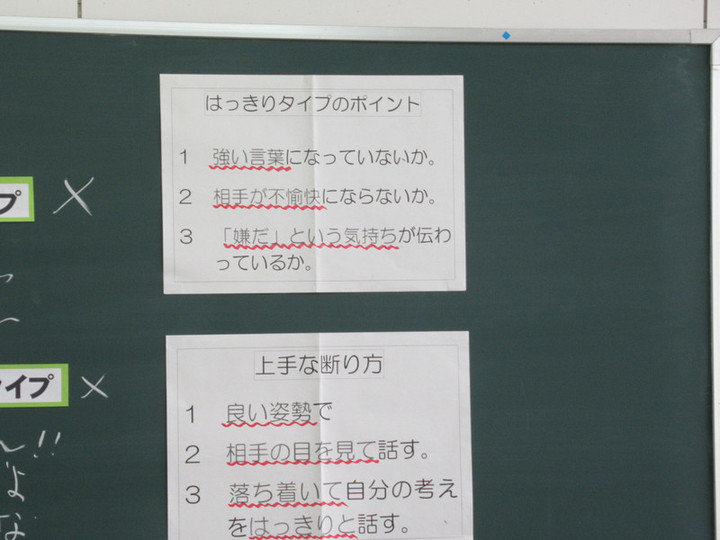 はっきりタイプのポイント
1 強い言葉になっていないか。
2 相手が不愉快にならないか。
3 「嫌だ」という気持ちが伝わ
っているか。
プ ×
イプ ×
ん!!
よ
な
上手な断り方
1 良い姿勢で
2 相手の目を見て話す。
3 落ち着いて自分の考え
をはっきりと話す。